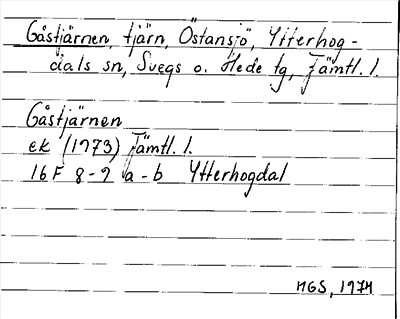 Gåstjärnen, tjärn, Östansjö, Ytterhog-
dals sn, Svegs o. Hede tg, Jämtl. l.
Gåstjärnen
ek (1973) Jämtl. l.
16F 8-9 a-b Ytterhogdal
MGS, 1974